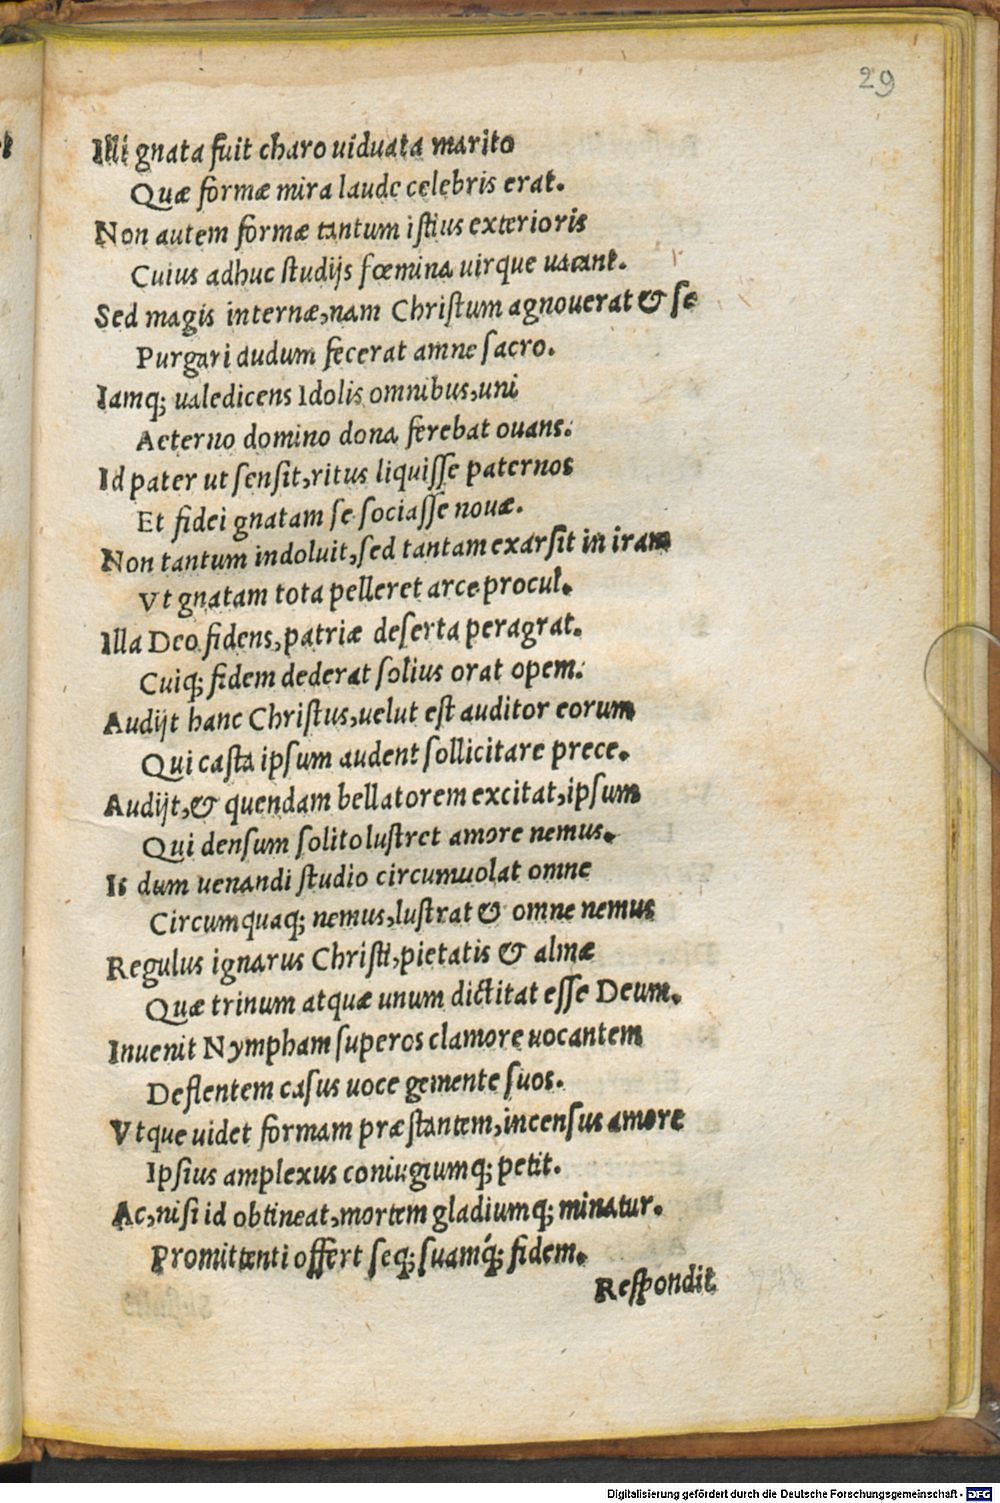 29
Illi gnata fuit charo uiduata marito
Quæ formæ mira laude celebris erat.
Non autem formæ tantum iſtius exterioris
Cuius adhuc ſtudijs fœmina uirque uacant.
Sed magis internæ, nam Chriſtum agnouerat & ſe
Purgari dudum fecerat amne ſacro.
Iamq; ualedicens Idolis omnibus, uni
Aeterno domino dona ferebat ouans.
Id pater ut ſenſit, ritus liquiſſe paternos
Et fidei gnatam ſe ſociaſſe nouæ.
Non tantum indoluit, ſed tantam exarſit in iram
Vt gnatam tota pelleret arce procul.
Illa Deo fidens, patriæ deſerta peragrat.
Cuiq; fidem dederat ſolius orat opem.
Audijt hanc Chriſtus, uelut eſt auditor eorum
Qui caſta ipſum audent ſollicitare prece.
Audijt, & quendam bellatorem excitat, ipſum
Qui denſum ſolito luſtret amore nemus.
Is dum uenandi ſtudio circumuolat omne
Circumquaq; nemus, luſtrat & omne nemus
Regulus ignarus Chriſti, pietatis & almæ
Quæ trinum atquæ unum dictitat eſſe Deum.
Inuenit Nympham ſuperos clamore uocantem
Deflentem caſus uoce gemente ſuos.
Vtque uidet formam præſtantem, incenſus amore
Ipſius amplexus coniugiumq; petit.
Ac, niſi id obtineat, mortem gladiumq; minatur.
Promittenti offert ſeq; ſuamq́; fidem.
Reſpondit
Digitalisierung gefördert durch die Deutsche Forschungsgemeinschaft - DFG